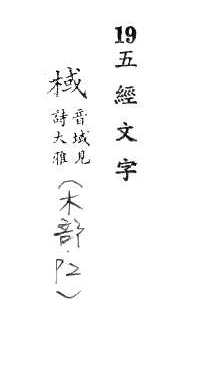 19五經文字
棫
音域見
詩大雅
(木部.P2)